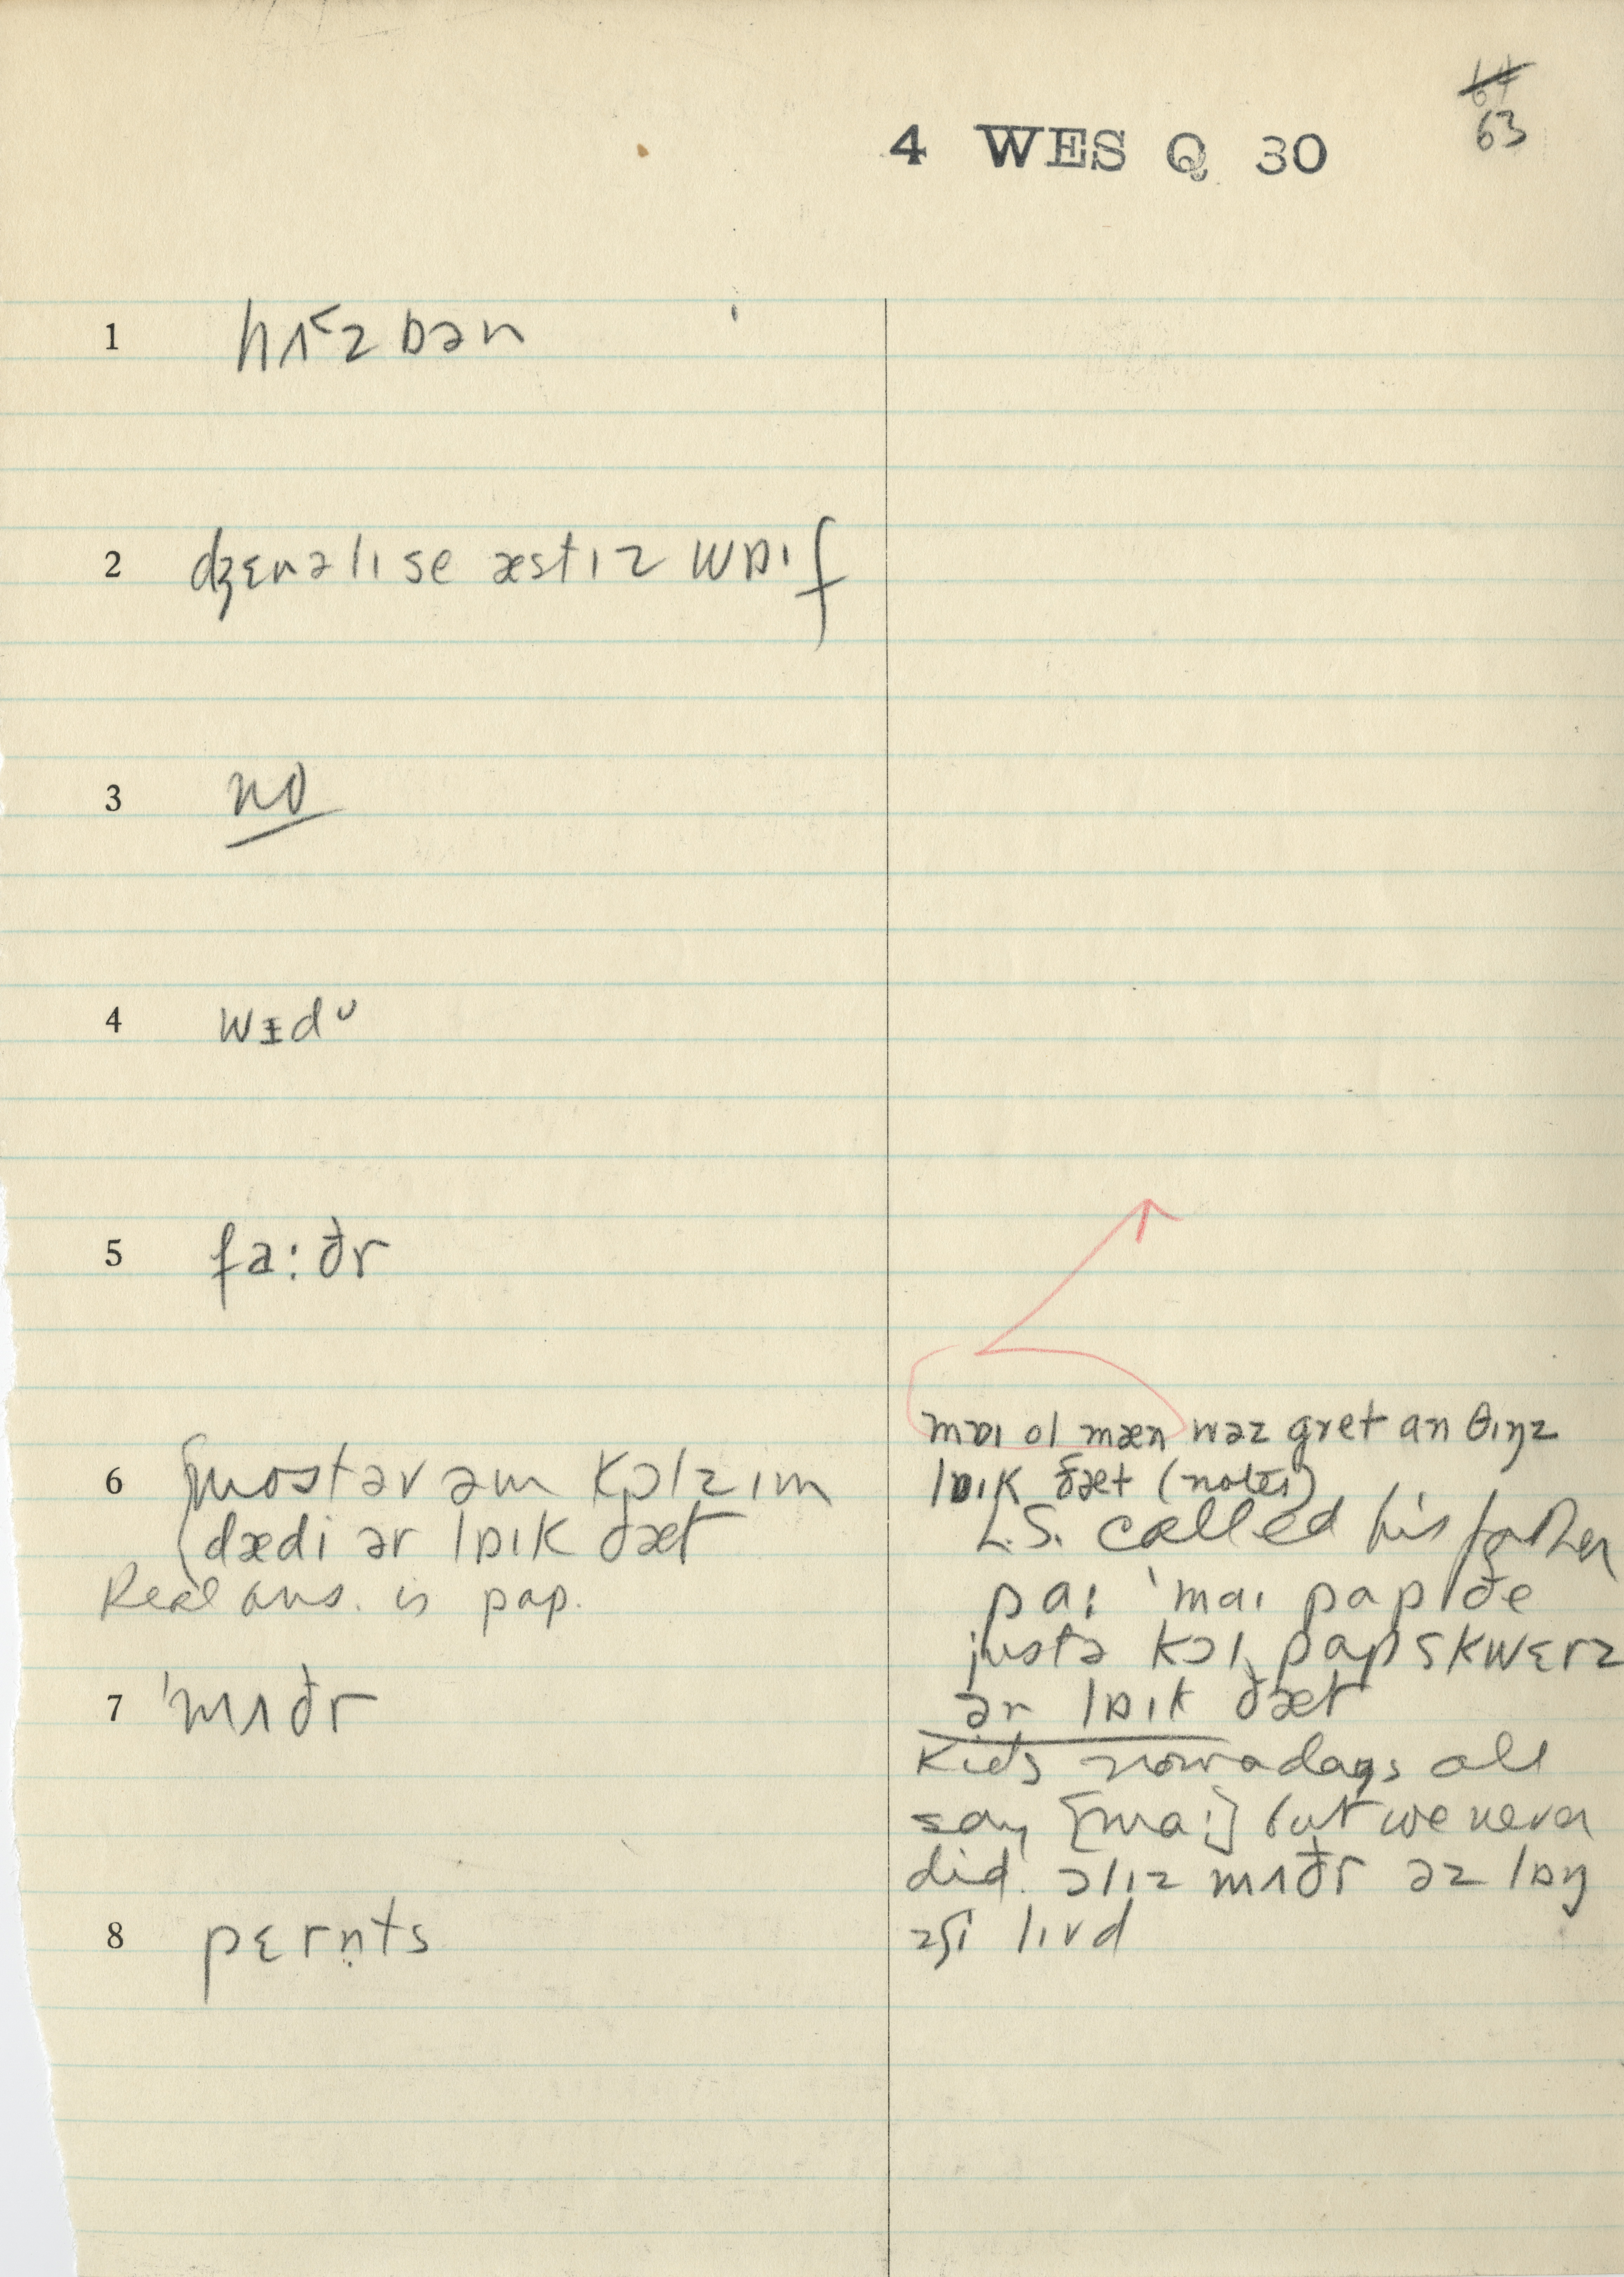 64
63
4 WES Q 30
1 hʌ˂zbən
2 dʒɛnəlɪ se æstɪz wɒɪf
3 no
4 wɪdᴜ
5 fa:ðr
6 mostəv əm kɔlzɪm
dædi ər lɒɪk ðæt
Real ans. is pap.
7 'mʌðr
8 pɛrn̩ts
mɒɪ ol mæn wəz gret an θɪŋz
lɒɪk ðæt (notes)
L.S. called his father
pa: 'maɪ pap ðe
justə kɔl pap skwɛrz
ər lɒɪk ðæt
Kids nowadays all
say [ma:] but we never
did. ɔlɪz mʌðr əz lɒŋ
əʃi lɪvd